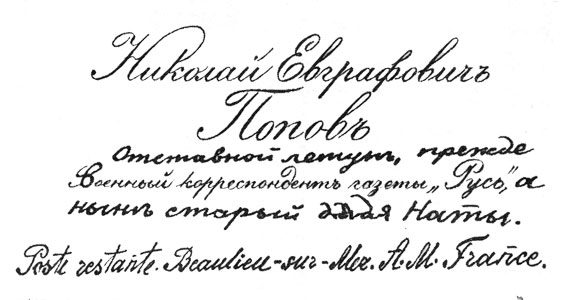 Николай Евграфовичъ
Поповъ
Отставной летунъ, прежде
Военный корреспондентъ газеты „Русь“, а
нынѣ старый дядя Наты.
Poste restante. Beaulieu-sur-Mer. A.M. France.